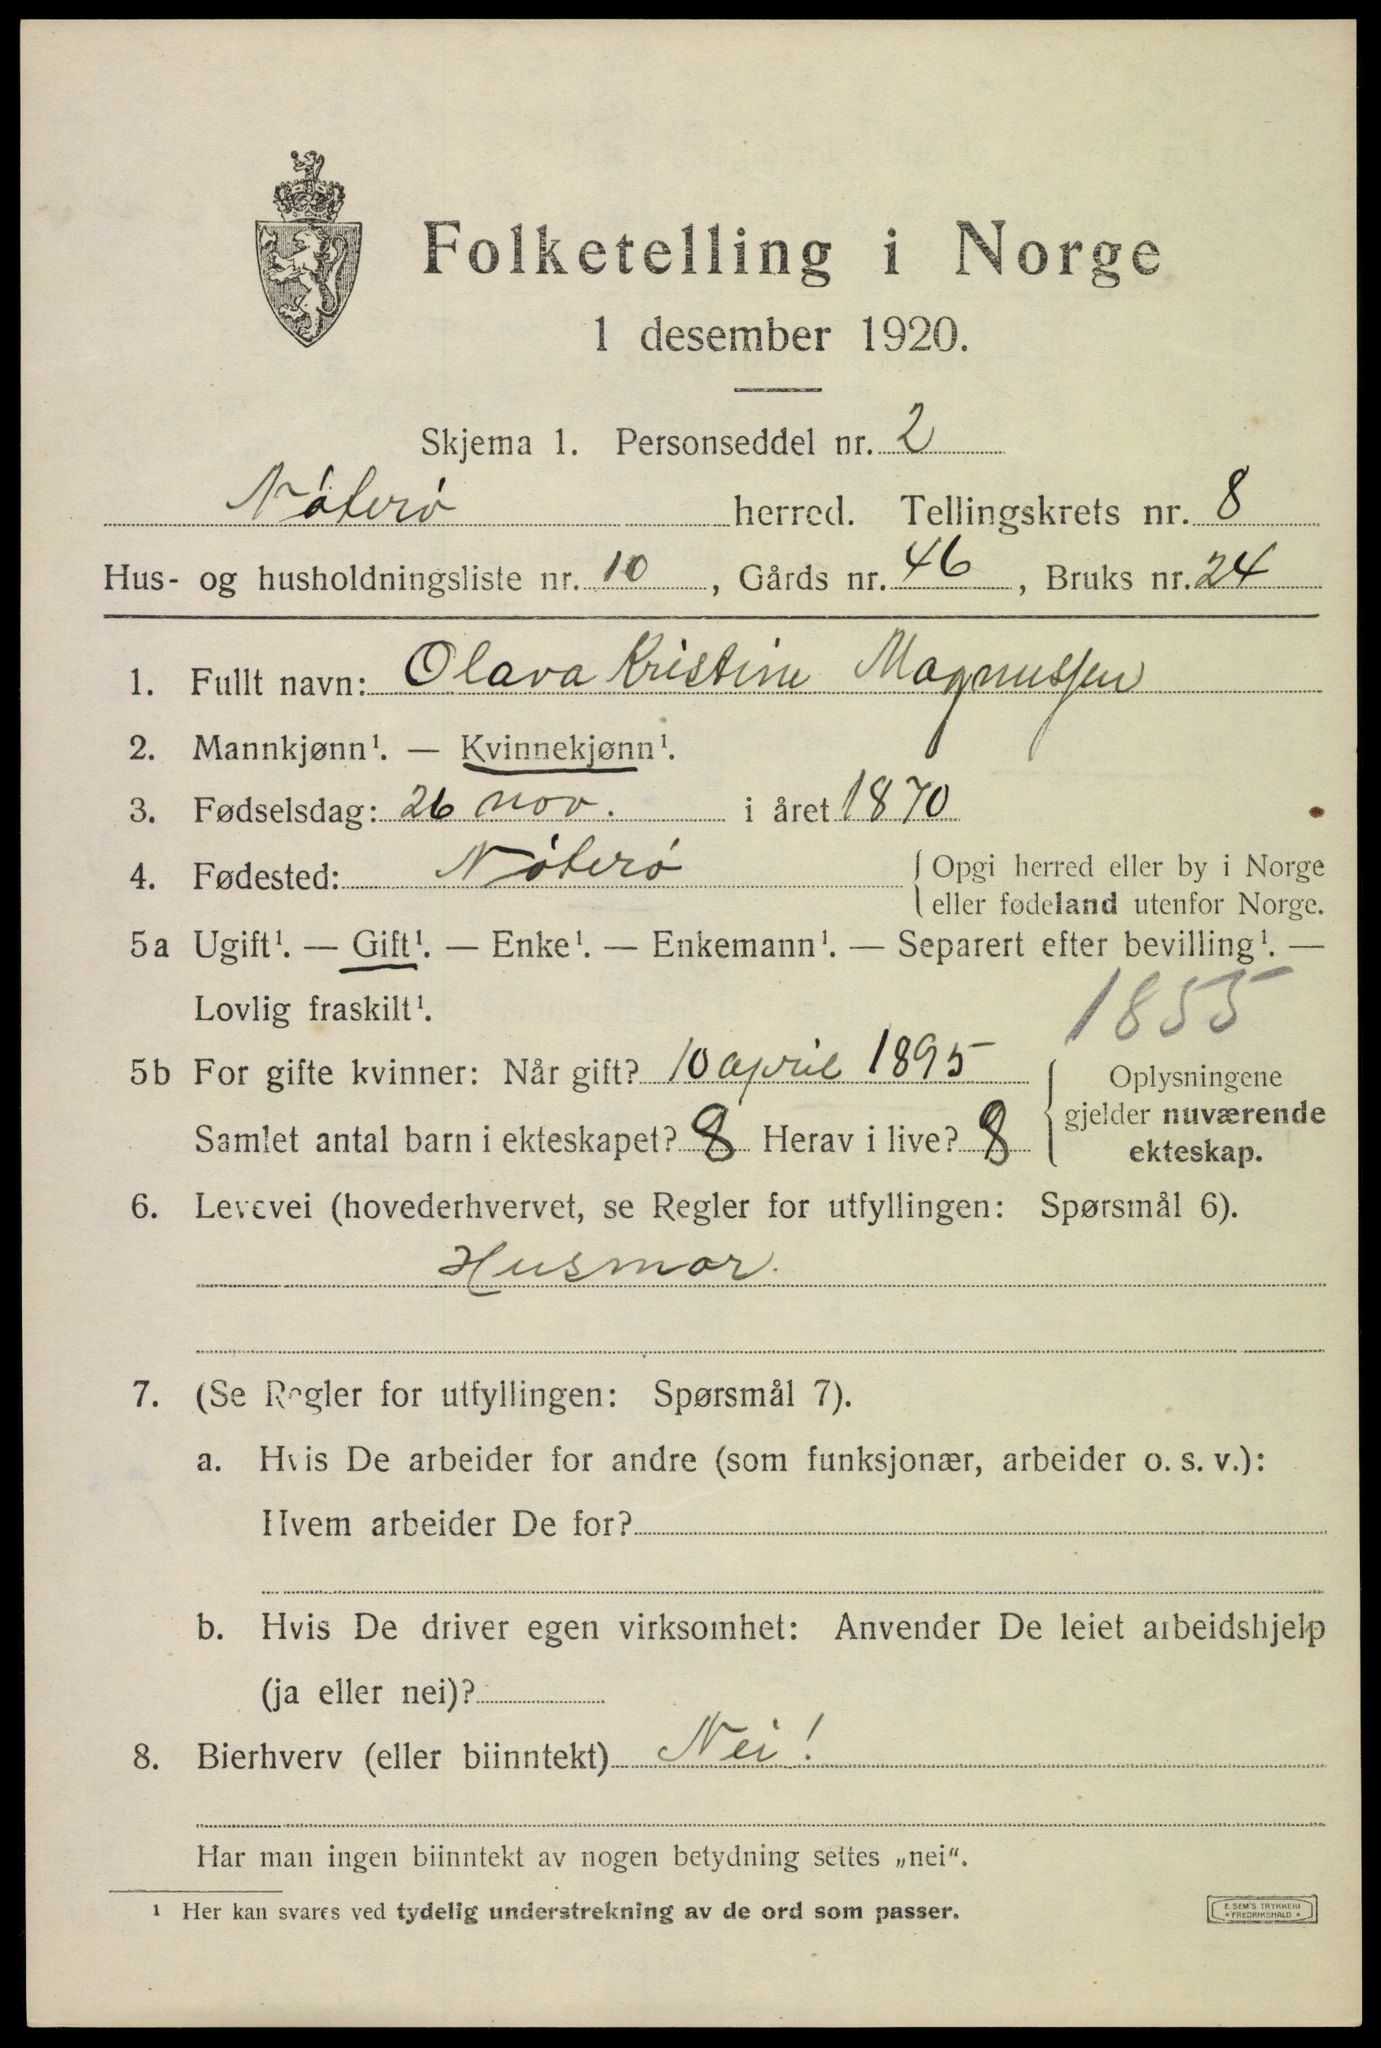 Folketelling i Norge
1 desember 1920.
Skjema 1. Personseddel nr. 2
Nøterø herred. Tellingskrets nr. 8
Hus- og husholdningsliste nr. 10, Gårds nr. 46, Bruks nr. 24
1. Fullt navn: Olava Kristine Magnussen
2. Mannkjønn¹. — Kvinnekjønn¹.
3. Fødselsdag: 26 nov. i året 1870
4. Fødested: Nøterø { Opgi herred eller by i Norge
eller fødeland utenfor Norge.
5a Ugift¹. — Gift¹. — Enke¹. — Enkemann¹. — Separert efter bevilling¹. —
Lovlig fraskilt¹. 1855
5b For gifte kvinner: Når gift? 10 april 1895 { Oplysningene
gjelder nuværende
Samlet antal barn i ekteskapet? 8 Herav i live? 8 ekteskap.
6. Levevei (hovederhvervet, se Regler for utfyllingen: Spørsmål 6).
Husmor.
7. (Se Regler for utfyllingen: Spørsmål 7).
a. Hvis De arbeider for andre (som funksjonær, arbeider o. s. v.):
Hvem arbeider De for?
b. Hvis De driver egen virksomhet: Anvender De leiet arbeidshjelp
(ja eller nei)?
8. Bierhverv (eller biinntekt) Nei!
Har man ingen biinntekt av nogen betydning settes „nei“.
¹ Her kan svares ved tydelig understrekning av de ord som passer.
E. SEM'S TRYKKERI
* FREDRIKSHALD *